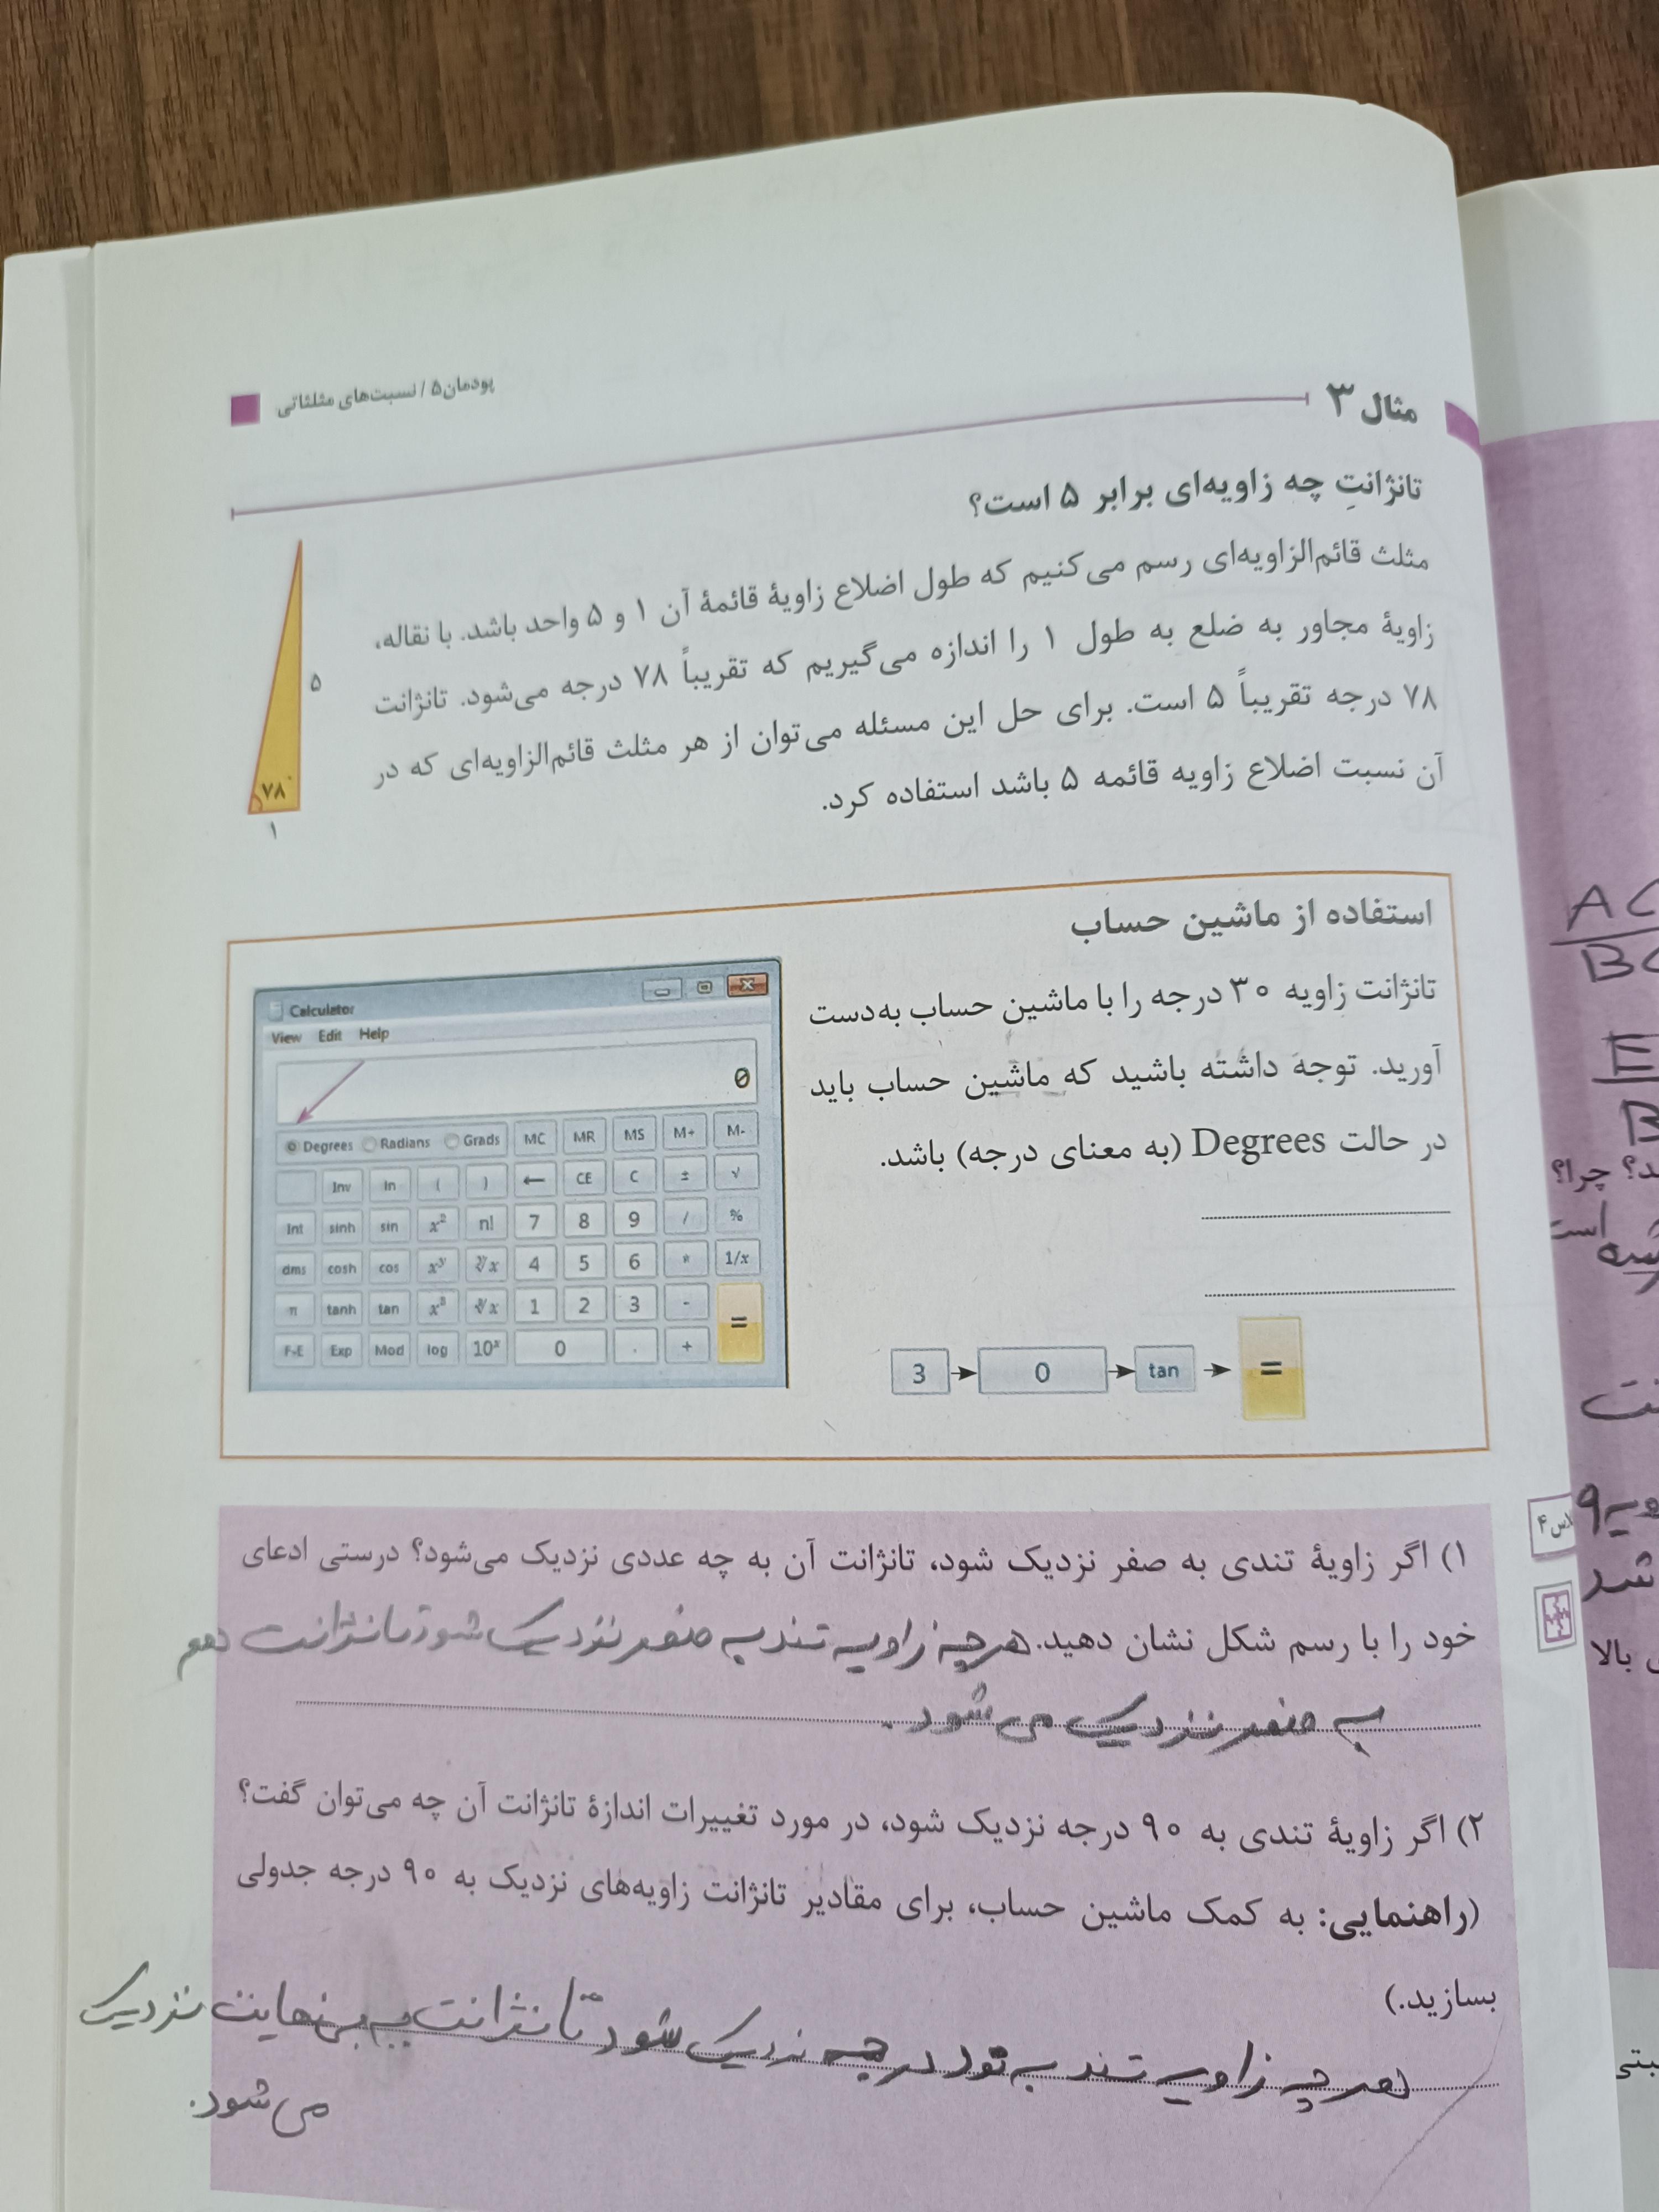 پودمان ۵ / نسبت‌های مثلثاتی
مثال ۳
تانژانتِ چه زاویه‌ای برابر ۵ است؟
مثلث قائم‌الزاویه‌ای رسم می‌کنیم که طول اضلاع زاویهٔ قائمهٔ آن ۱ و ۵ واحد باشد. با نقاله،
زاویهٔ مجاور به ضلع به طول ۱ را اندازه می‌گیریم که تقریباً ۷۸ درجه می‌شود. تانژانت
۷۸ درجه تقریباً ۵ است. برای حل این مسئله می‌توان از هر مثلث قائم‌الزاویه‌ای که در
آن نسبت اضلاع زاویه قائمه ۵ باشد استفاده کرد.
۵
۷۸°
۱
استفاده از ماشین حساب
تانژانت زاویه ۳۰ درجه را با ماشین حساب به‌دست
آورید. توجه داشته باشید که ماشین حساب باید
در حالت Degrees (به معنای درجه) باشد.
Calculator
View Edit Help
0
Degrees Radians Grads MC MR MS M+ M-
Inv ln ( ) ← CE C ± √
Int sinh sin x² n! 7 8 9 / %
dms cosh cos xʸ ʸ√x 4 5 6 * 1/x
π tanh tan x³ ³√x 1 2 3 - =
F-E Exp Mod log 10ˣ 0 . +
3 → 0 → tan → =
۱) اگر زاویهٔ تندی به صفر نزدیک شود، تانژانت آن به چه عددی نزدیک می‌شود؟ درستی ادعای
خود را با رسم شکل نشان دهید. هرچه زاویه تند به صفر نزدیک شود تانژانت هم
به صفر نزدیک می شود.
۲) اگر زاویهٔ تندی به ۹۰ درجه نزدیک شود، در مورد تغییرات اندازهٔ تانژانت آن چه می‌توان گفت؟
(راهنمایی: به کمک ماشین حساب، برای مقادیر تانژانت زاویه‌های نزدیک به ۹۰ درجه جدولی
بسازید.)
هر چه زاویه تند به نود درجه نزدیک شود تانژانت به بی نهایت نزدیک
می شود.
چرا؟
است
بالا